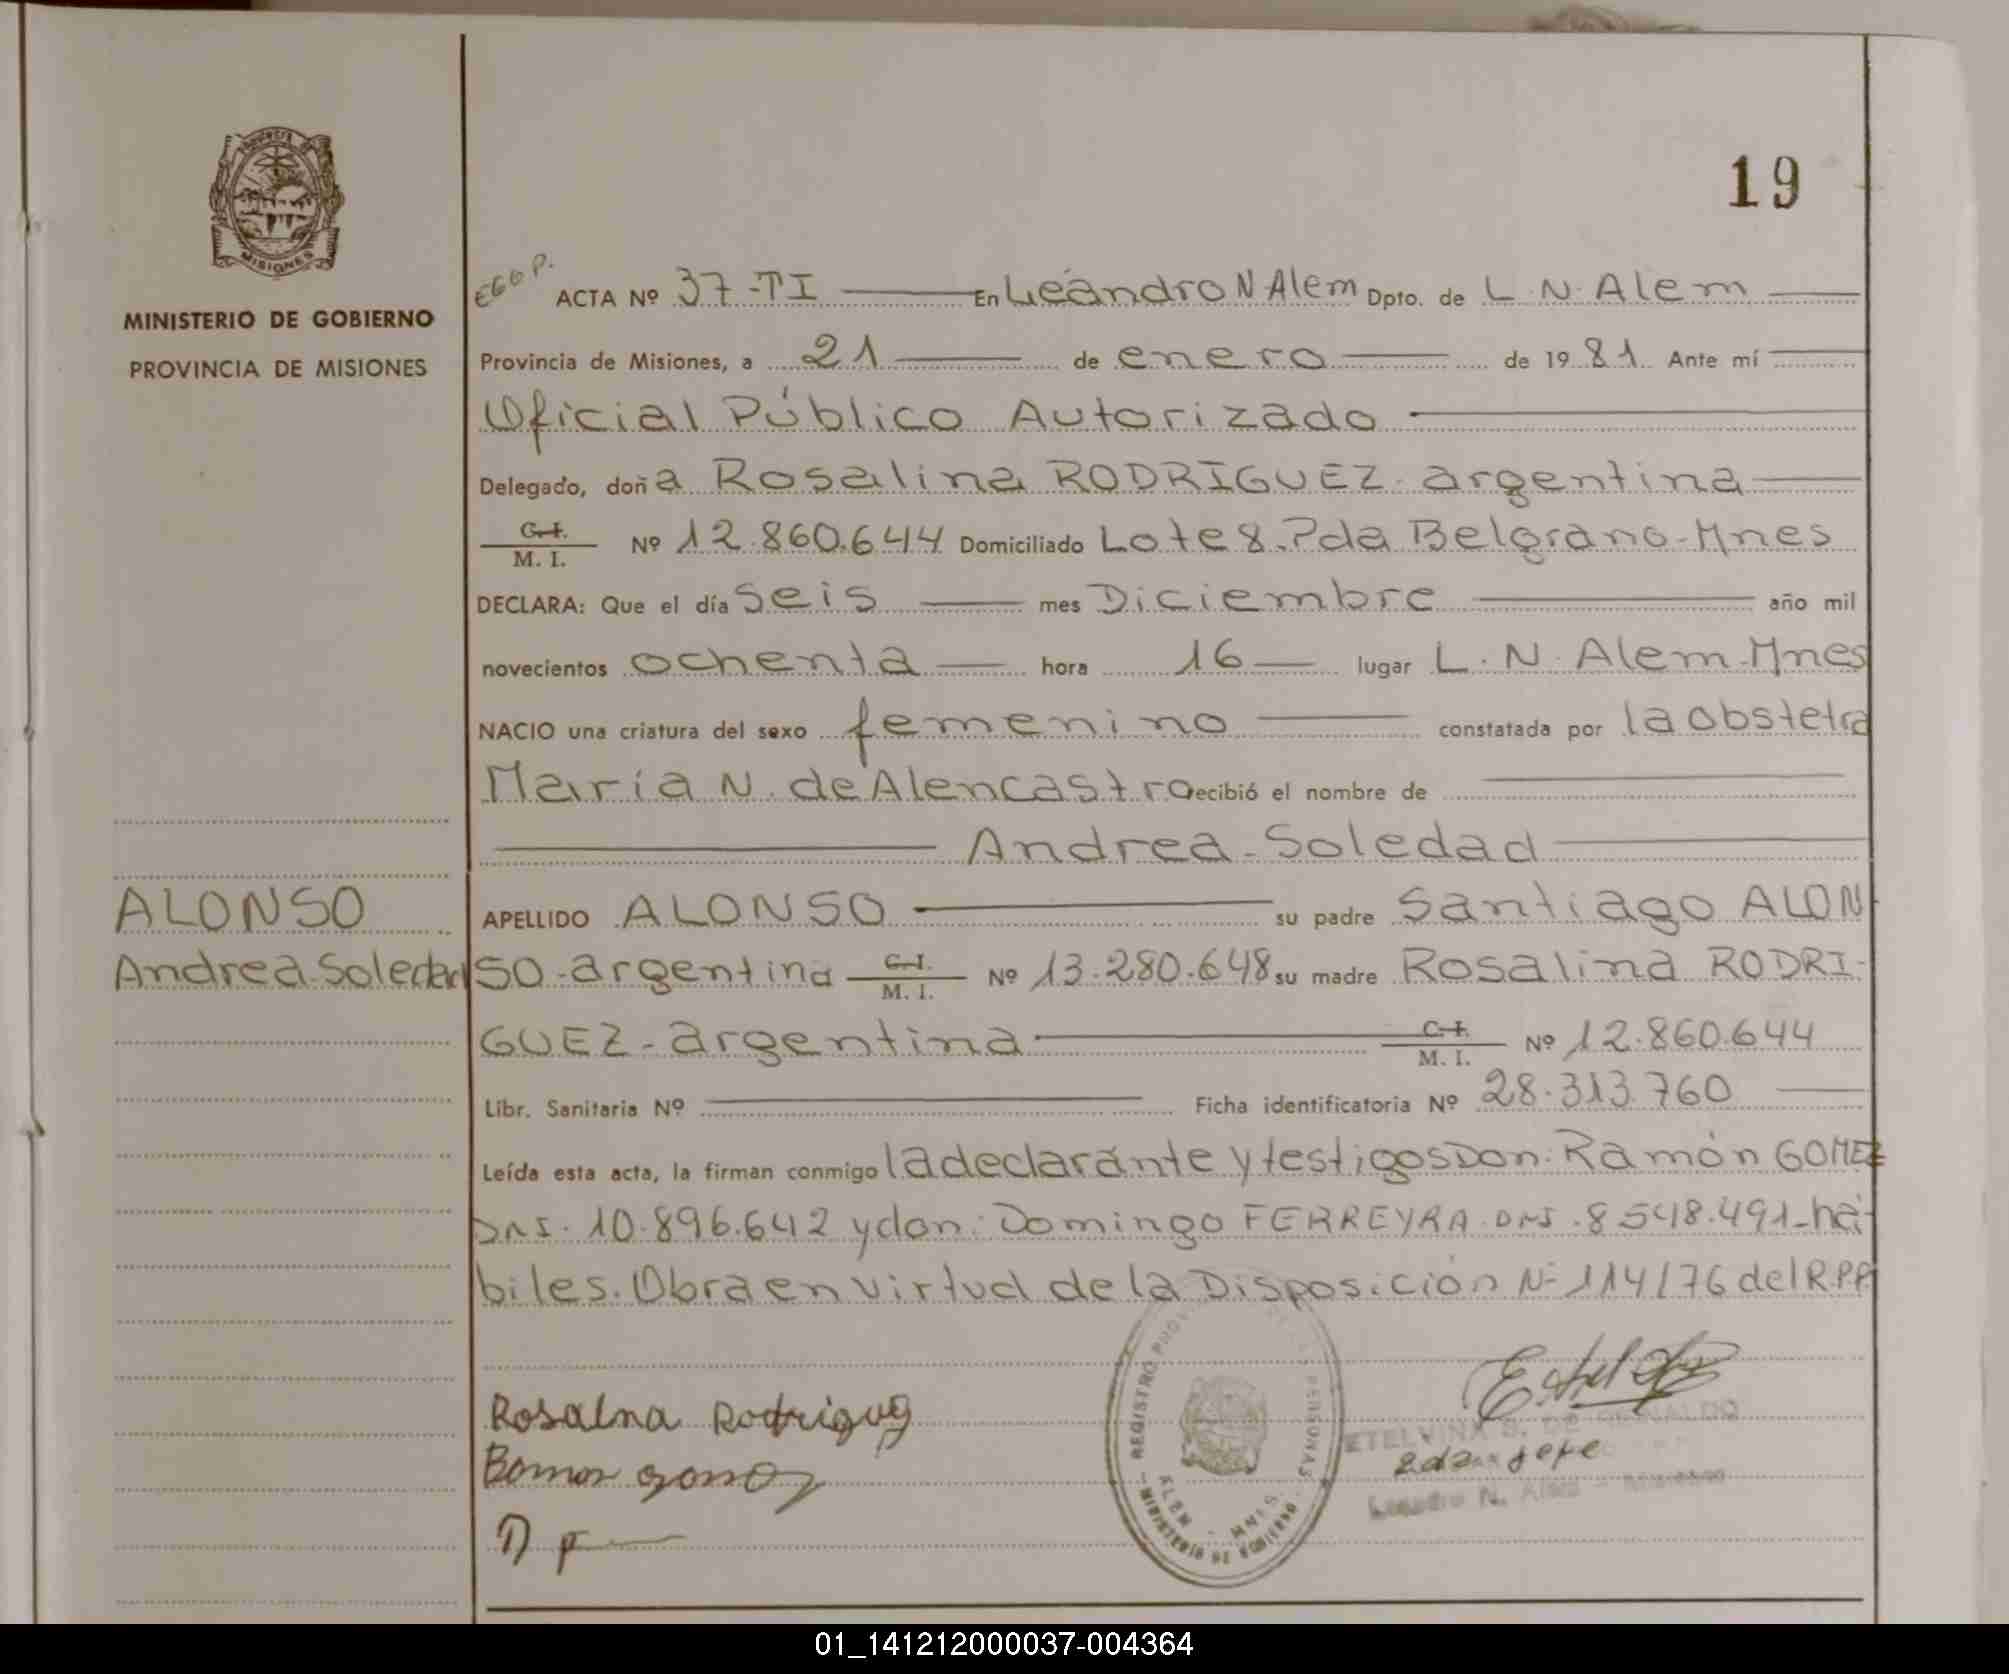 19
PROVINCIA
MISIONES
MINISTERIO DE GOBIERNO
PROVINCIA DE MISIONES
ACTA Nº 37-TI En Leandro N Alem Dpto. de L.N. Alem
Provincia de Misiones, a 21 de enero de 1981. Ante mí
Oficial Público Autorizado
Delegado, doña Rosalina RODRIGUEZ. argentina
C.I.
M. I. Nº 12.860.644 Domiciliado Lote 8. Pda Belgrano-Mnes
DECLARA: Que el día seis mes Diciembre año mil
novecientos ochenta hora 16 lugar L. N. Alem-Mnes
NACIO una criatura del sexo femenino constatada por la obstetra
María N. de Alencastro ecibió el nombre de
Andrea-Soledad
ALONSO
Andrea-Soledad
APELLIDO ALONSO su padre Santiago ALON
SO-argentina C.I. M. I. Nº 13.280.648 su madre Rosalina RODRI-
GUEZ-argentina C.I. M. I. Nº 12.860.644
Libr. Sanitaria Nº Ficha identificatoria Nº 28.313.760
Leída esta acta, la firman conmigo la declarante y testigos Don: Ramón GOMEZ
DNI. 10.896.642 y don: Domingo FERREYRA. DNI. 8548.491-há-
biles. Obra en virtud de la Disposición Nº 114/76 del R.P.P.
Rosalna Rodriguez
Ramon gomez
D F
REGISTRO PROV PERSONAS
ALEM - MNES.
MINISTERIO DE GOBIERNO
ETELVINA S. DE
jefe
Leandro N. Alem - Misiones
01_141212000037-004364